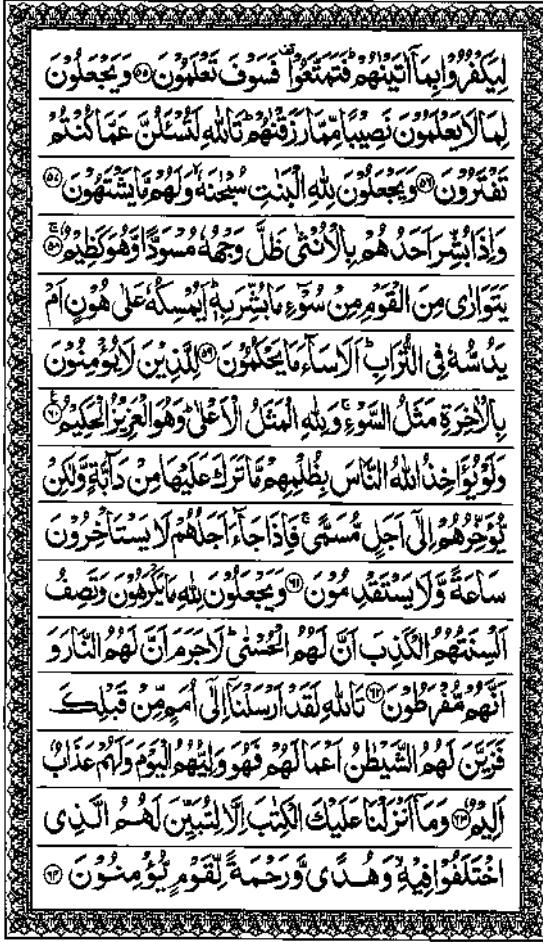 لِيَكْفُرُوْا بِمَاۤ اٰتَيْنٰهُمْ ؕ فَتَمَتَّعُوْا ۫ فَسَوْفَ تَعْلَمُوْنَ ﴿۵۵﴾ وَيَجْعَلُوْنَ
لِمَا لَا يَعْلَمُوْنَ نَصِيْبًا مِّمَّا رَزَقْنٰهُمْ ؕ تَاللّٰهِ لَتُسْـَٔلُنَّ عَمَّا كُنْتُمْ
تَفْتَرُوْنَ ﴿۵۶﴾ وَيَجْعَلُوْنَ لِلّٰهِ الْبَنٰتِ سُبْحٰنَهٗ ۙ وَلَهُمْ مَّا يَشْتَهُوْنَ ﴿۵۷﴾
وَاِذَا بُشِّرَ اَحَدُهُمْ بِالْاُنْثٰى ظَلَّ وَجْهُهٗ مُسْوَدًّا وَّهُوَ كَظِيْمٌ ۚ ﴿۵۸﴾
يَتَوَارٰى مِنَ الْقَوْمِ مِنْ سُوْٓءِ مَا بُشِّرَ بِهٖ ؕ اَيُمْسِكُهٗ عَلٰى هُوْنٍ اَمْ
يَدُسُّهٗ فِى التُّرَابِ ؕ اَلَا سَآءَ مَا يَحْكُمُوْنَ ﴿۵۹﴾ لِلَّذِيْنَ لَا يُؤْمِنُوْنَ
بِالْاٰخِرَةِ مَثَلُ السَّوْءِ ۚ وَلِلّٰهِ الْمَثَلُ الْاَعْلٰى ؕ وَهُوَ الْعَزِيْزُ الْحَكِيْمُ ﴿۶۰﴾
وَلَوْ يُؤَاخِذُ اللّٰهُ النَّاسَ بِظُلْمِهِمْ مَّا تَرَكَ عَلَيْهَا مِنْ دَآبَّةٍ وَّلٰكِنْ
يُّؤَخِّرُهُمْ اِلٰٓى اَجَلٍ مُّسَمًّى ۚ فَاِذَا جَآءَ اَجَلُهُمْ لَا يَسْتَاْخِرُوْنَ
سَاعَةً وَّلَا يَسْتَقْدِمُوْنَ ﴿۶۱﴾ وَيَجْعَلُوْنَ لِلّٰهِ مَا يَكْرَهُوْنَ وَتَصِفُ
اَلْسِنَتُهُمُ الْكَذِبَ اَنَّ لَهُمُ الْحُسْنٰى ؕ لَا جَرَمَ اَنَّ لَهُمُ النَّارَ وَ
اَنَّهُمْ مُّفْرَطُوْنَ ﴿۶۲﴾ تَاللّٰهِ لَقَدْ اَرْسَلْنَاۤ اِلٰٓى اُمَمٍ مِّنْ قَبْلِكَ
فَزَيَّنَ لَهُمُ الشَّيْطٰنُ اَعْمَالَهُمْ فَهُوَ وَلِيُّهُمُ الْيَوْمَ وَلَهُمْ عَذَابٌ
اَلِيْمٌ ﴿۶۳﴾ وَمَاۤ اَنْزَلْنَا عَلَيْكَ الْكِتٰبَ اِلَّا لِتُبَيِّنَ لَهُمُ الَّذِى
اخْتَلَفُوْا فِيْهِ ۙ وَهُدًى وَّرَحْمَةً لِّقَوْمٍ يُّؤْمِنُوْنَ ﴿۶۴﴾